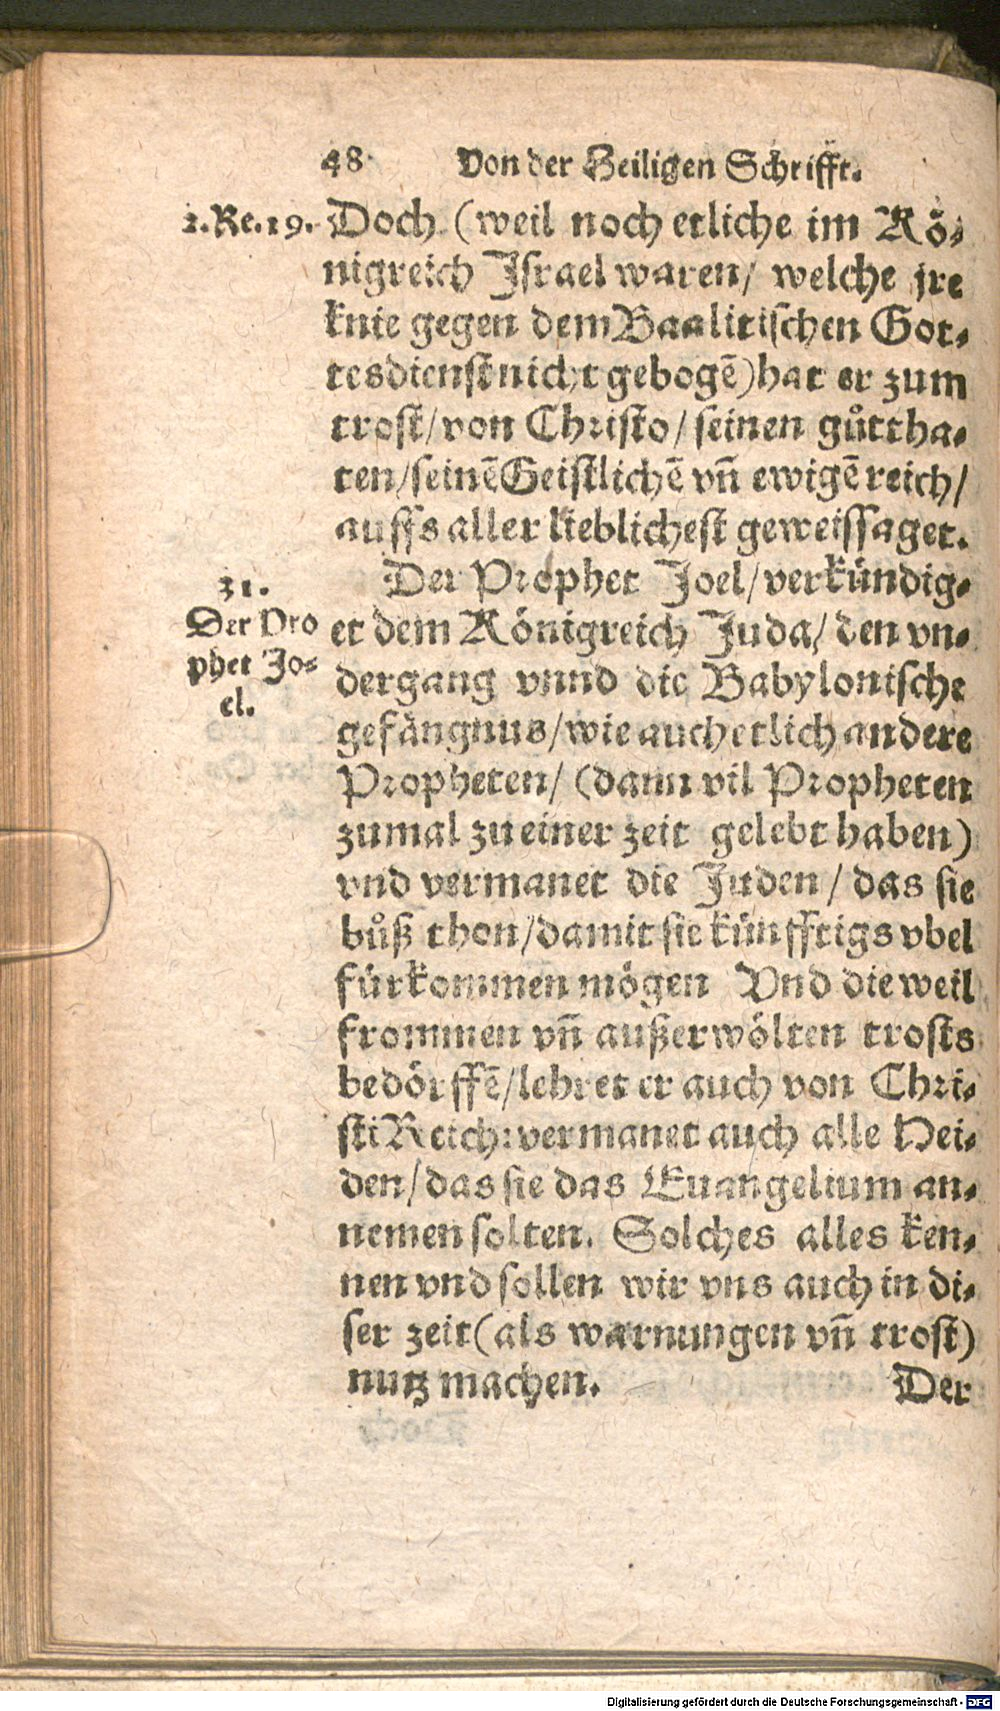 48 Von der Heiligen Schrifft.
1.Re.19. Doch (weil noch etliche im Kö⸗
nigreich Israel waren/ welche jre
knie gegen dem Baalitischen Got⸗
tesdienst nicht gebogē) hat er zum
trost/ von Christo/ seinen gůttha⸗
ten/ seinē Geistlichē vñ ewigē reich/
auffs aller lieblichest geweissaget.
31.
Der Pro
phet Jo⸗
el.
Der Prophet Joel/ verkündig⸗
et dem Königreich Juda/ den vn⸗
dergang vnnd die Babylonische
gefängnus/ wie auch etlich andere
Propheten/ (dann vil Propheten
zumal zu einer zeit gelebt haben)
vnd vermanet die Juden/ das sie
bůß thon/ damit sie künfftigs vbel
fürkommen mögen Vnd die weil
frommen vñ außerwölten trosts
bedörffē/ lehret er auch von Chri⸗
sti Reich: vermanet auch alle Hei⸗
den/ das sie das Euangelium an⸗
nemen solten. Solches alles ken⸗
nen vnd sollen wir vns auch in di⸗
ser zeit (als warnungen vñ trost)
nutz machen. Der
Digitalisierung gefördert durch die Deutsche Forschungsgemeinschaft - DFG